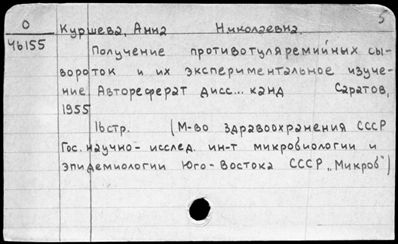 О
5
Куршева, Анна Николаевна.
Ч6155
Получение противотуляремийных сы-
вороток и их экспериментальное изуче-
ние Автореферат дисс... канд Саратов,
1955
16стр. (М-во здравоохранения СССР
Гос. научно-исслед. ин-т микробиологии и
эпидемиологии Юго-Востока СССР „Микроб")